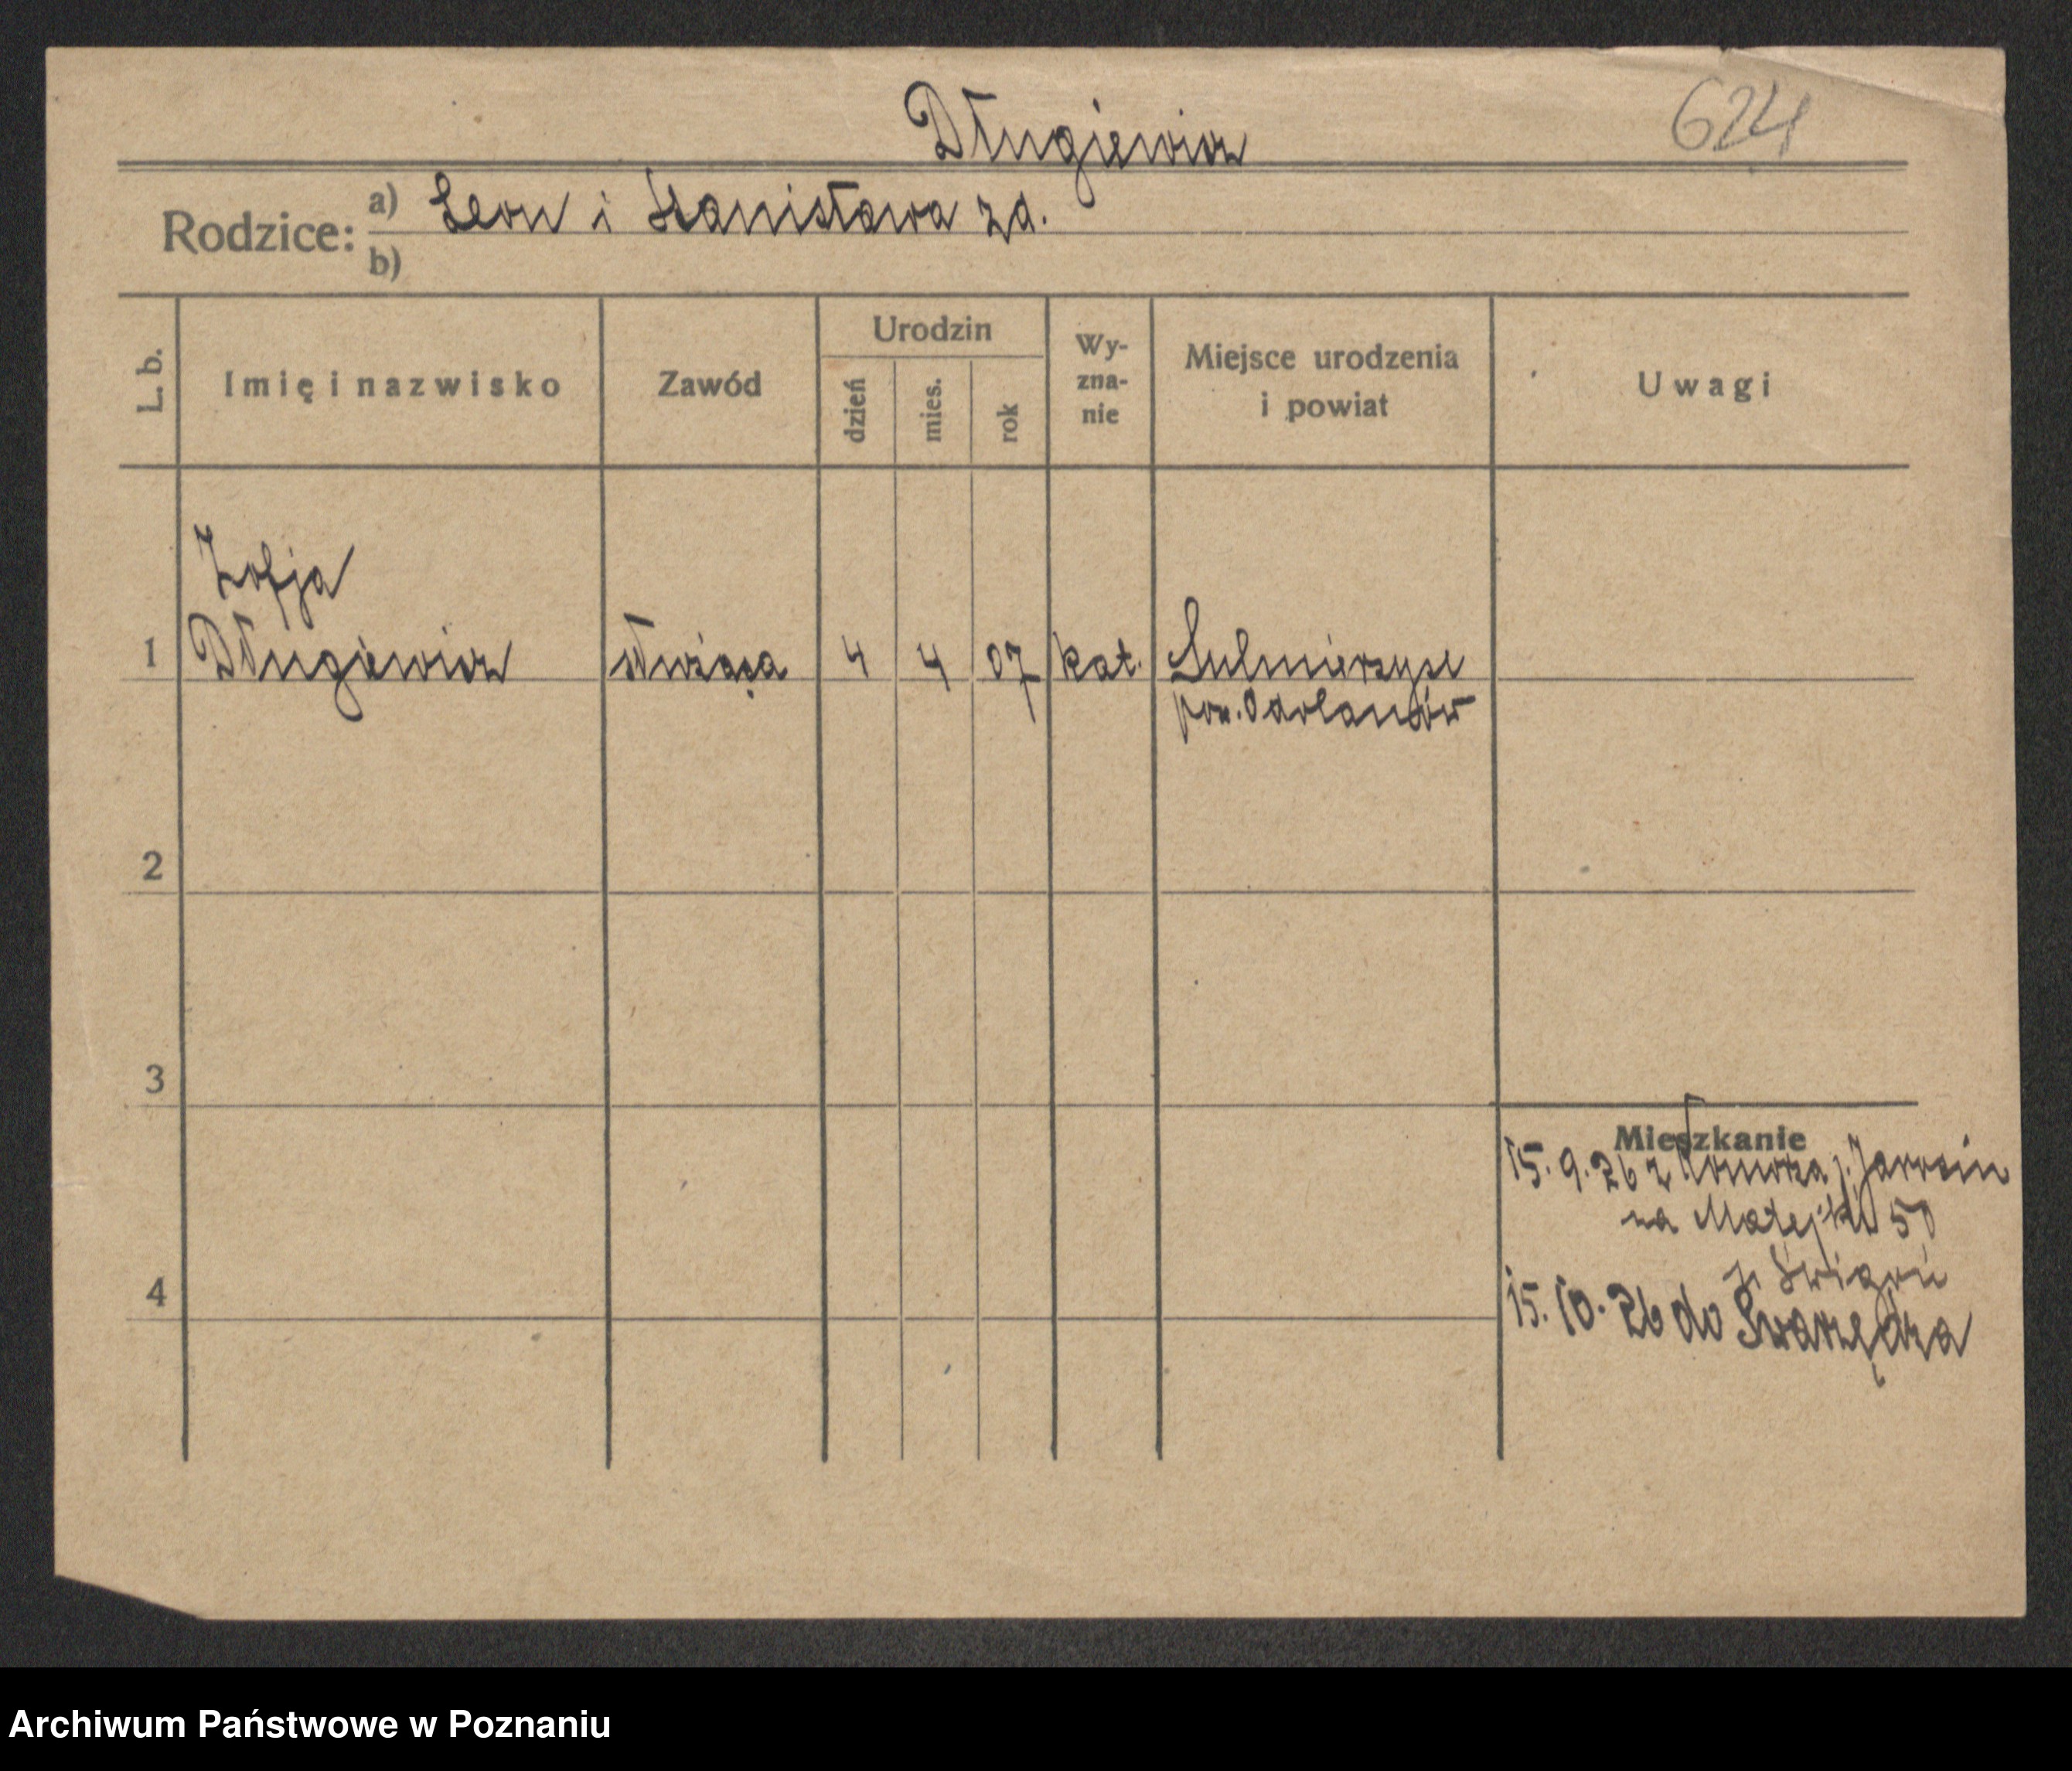 Długiewicz
624
Rodzice: a) Leon i Stanisława zd.
b)
L. b. Imię i nazwisko Zawód Urodzin dzień mies. rok Wy-zna-nie Miejsce urodzenia i powiat Uwagi
Zofja
1 Długiewicz służąca 4 4 07 kat. Sulmierzyce
pow. Odolanów
2
3
Mieszkanie
15. 9. 26 z Jarocin
na Matejki 50
4
15. 10. 26 do Swarzędza
Archiwum Państwowe w Poznaniu